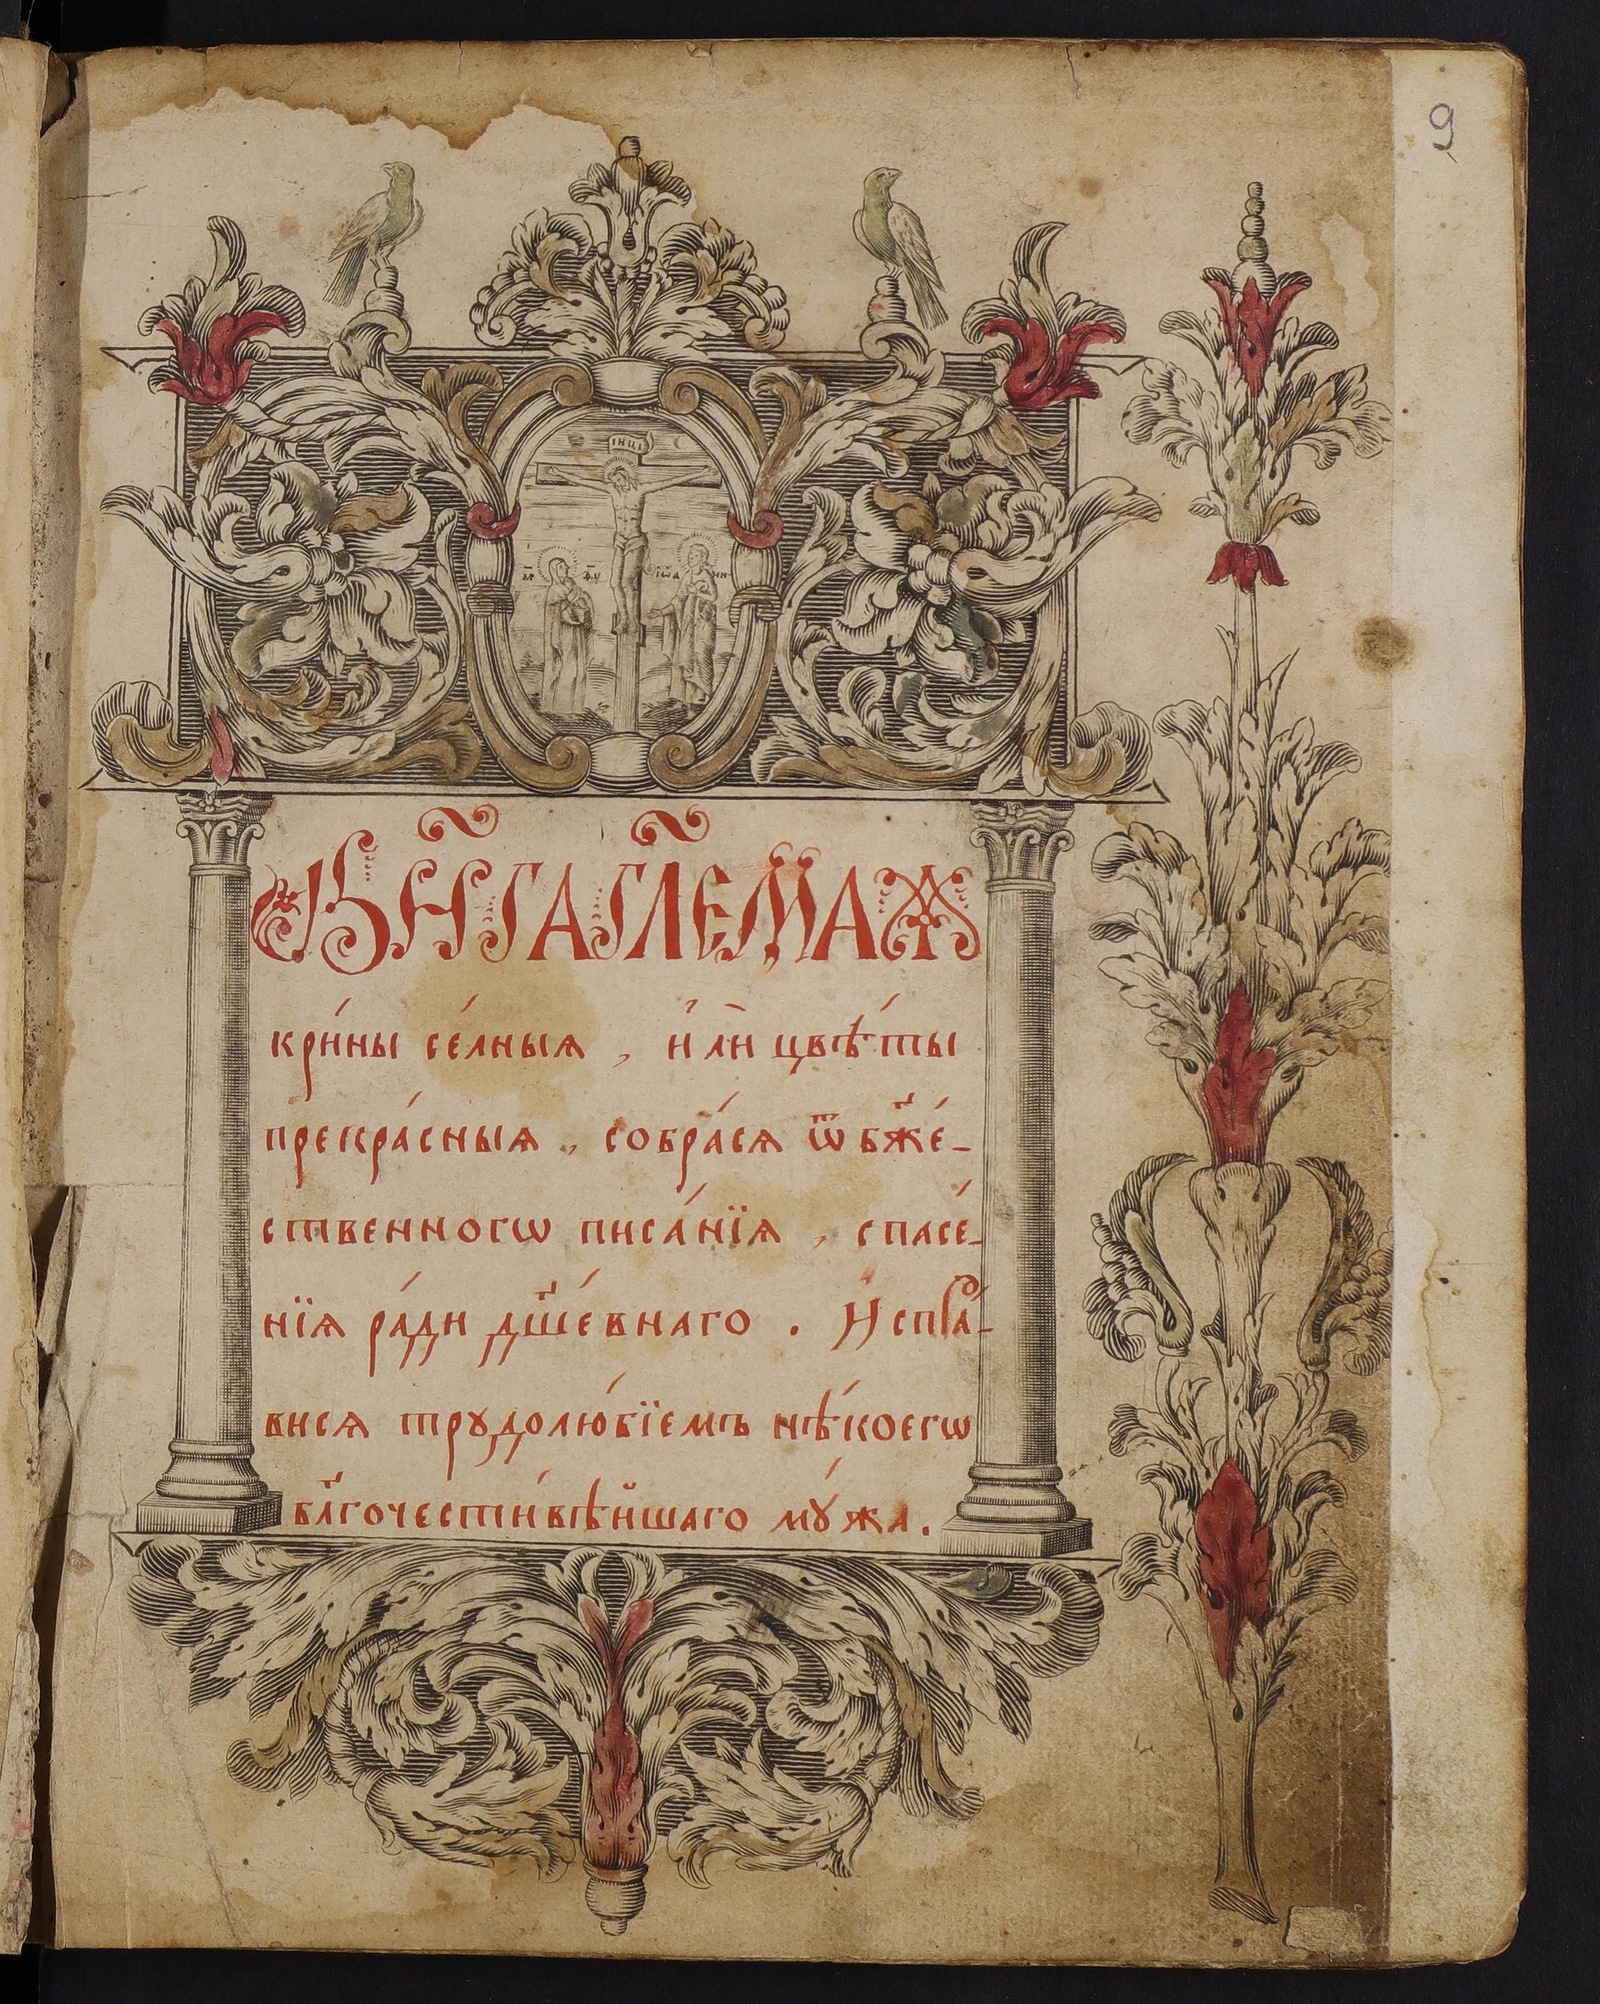 9
ІНЦІ
М҃Р Ѳ҃У ІѠА НН
Кни҃га гл҃емаѧ
кри́ны се́лныѧ, и҆лѝ цвѣ́ты
прекра́сныѧ, собра́сѧ ѿ бж҃е́-
ственногѡ писа́нїѧ, спасе́-
нїѧ ра́ди дш҃е́внаго. Испра́-
висѧ трудолю́бїемъ нѣ́коегѡ
бл҃гочести́вѣйшаго мꙋ́жа.